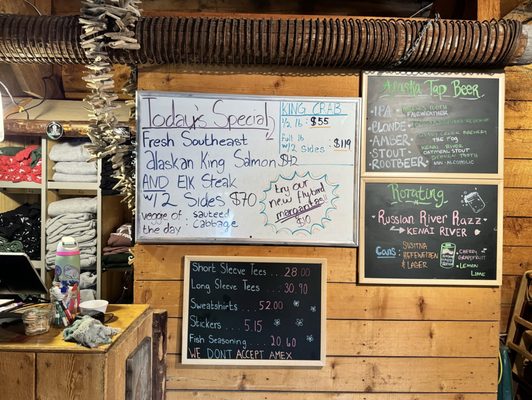 Today's Special
Fresh Southeast
alaskan King Salmon $42
AND Elk Steak
w/ 2 Sides $70
veggie of : sauteed
the day : cabbage
KING CRAB
1/2 lb : $55
Full lb
w/ 2 sides : $119
try our
new flybird
margaritas
$10
Alaska Tap Beer
IPA
FAIRWEATHER
BLONDE
AMBER
THE FOG
STOUT
OATMEAL STOUT
ROOTBEER
NON ALCOHOLIC
Rotating
Russian River Razz
KENAI RIVER
Cans:
SUSITNA
HEFEWEIZEN
& LAGER
CHERRY
GRAPEFRUIT
LEMON
LIME
Short Sleeve Tees .. 28.00
Long Sleeve Tees .... 30.90
Sweatshirts .... 52.00
Stickers .... 5.15
Fish Seasoning .... 20.60
WE DON'T ACCEPT AMEX